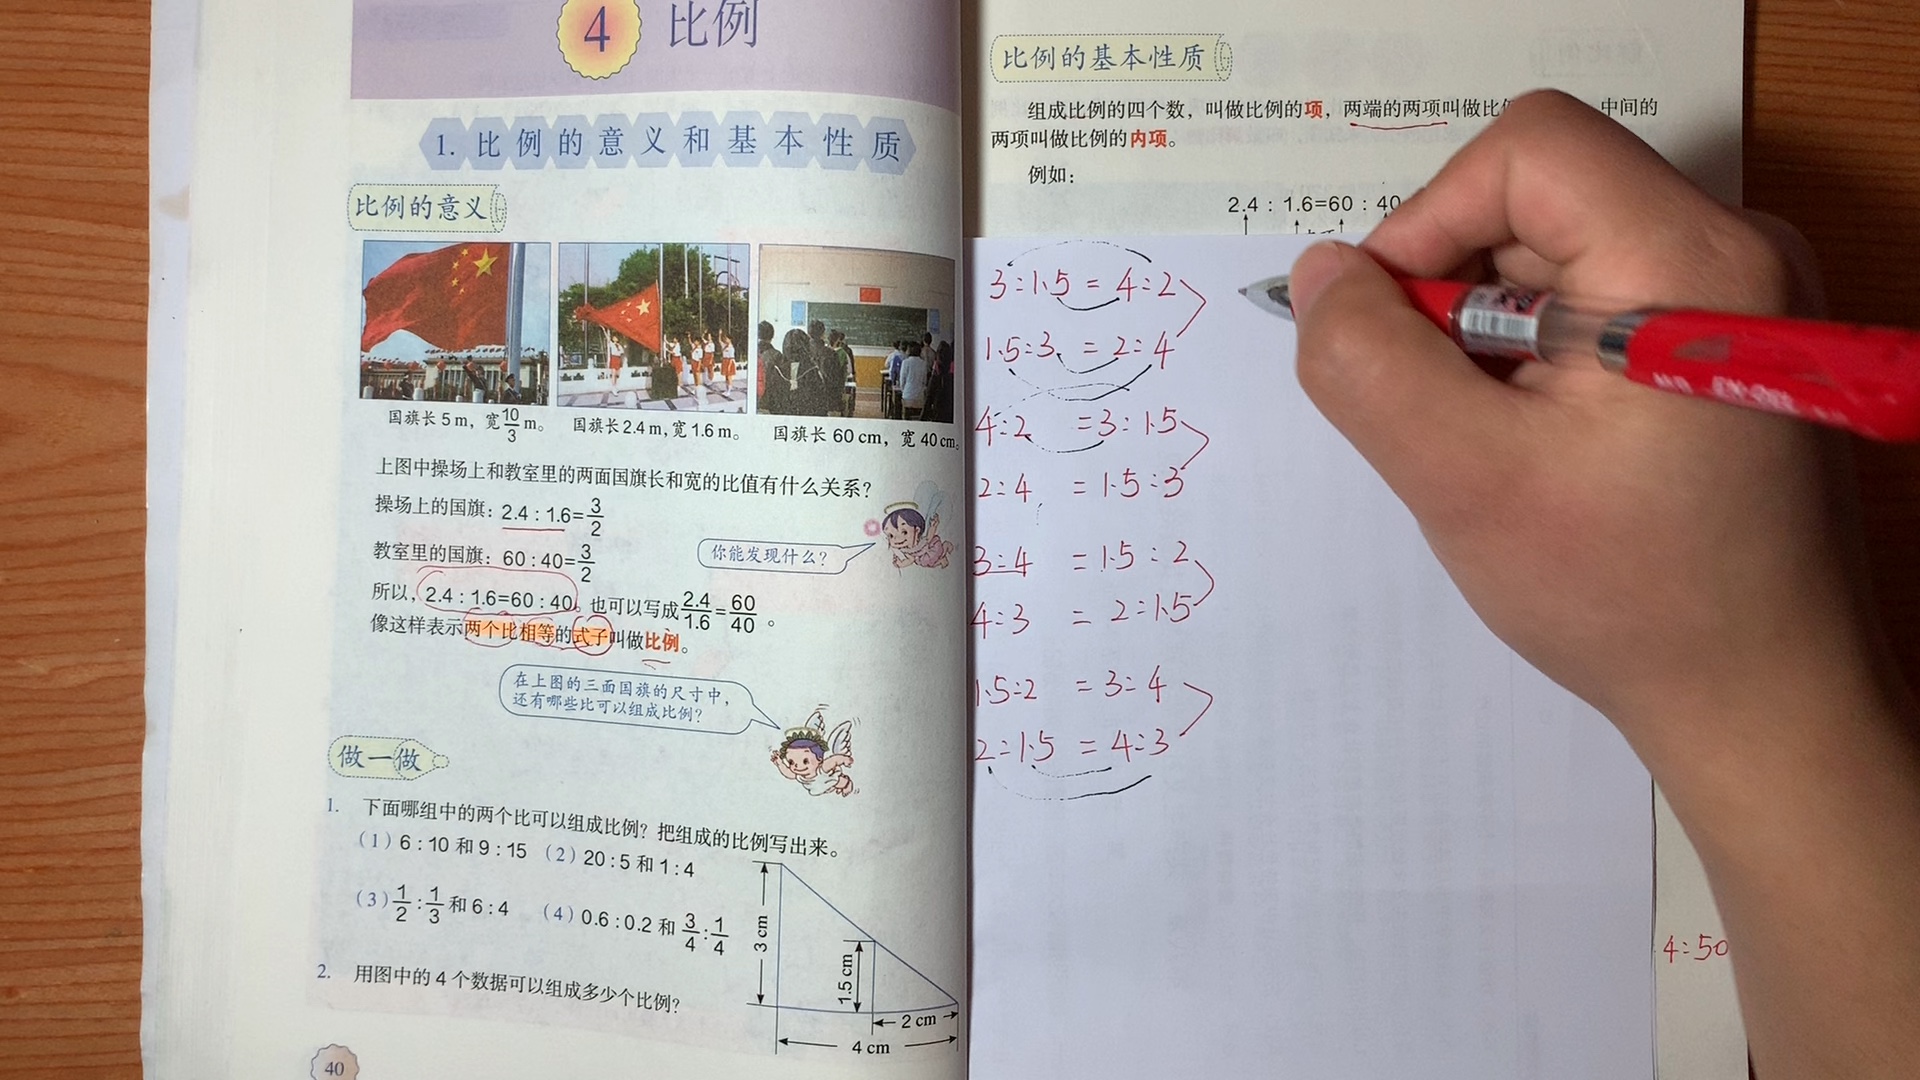 4 比例
1. 比例的意义和基本性质
比例的意义
国旗长 5 m，宽 10/3 m。
国旗长 2.4 m，宽 1.6 m。
国旗长 60 cm，宽 40 cm。
上图中操场上和教室里的两面国旗长和宽的比值有什么关系？
操场上的国旗：2.4 : 1.6 = 3/2
教室里的国旗：60 : 40 = 3/2
你能发现什么？
所以，2.4 : 1.6=60 : 40。也可以写成 2.4/1.6 = 60/40 。
像这样表示两个比相等的式子叫做比例。
在上图的三面国旗的尺寸中，
还有哪些比可以组成比例？
做一做
1. 下面哪组中的两个比可以组成比例？把组成的比例写出来。
（1）6 : 10 和 9 : 15 （2）20 : 5 和 1 : 4
（3）1/2 : 1/3 和 6 : 4 （4）0.6 : 0.2 和 3/4 : 1/4
2. 用图中的 4 个数据可以组成多少个比例？
3 cm
1.5 cm
2 cm
4 cm
40
比例的基本性质
组成比例的四个数，叫做比例的项，两端的两项叫做比 中间的
两项叫做比例的内项。
例如：
2.4 : 1.6=60 : 40
3:1.5 = 4:2
1.5:3 = 2:4
4:2 =3:1.5
2:4 = 1.5:3
3:4 =1.5:2
4:3 = 2:1.5
1.5:2 = 3:4
2:1.5 = 4:3
4:50